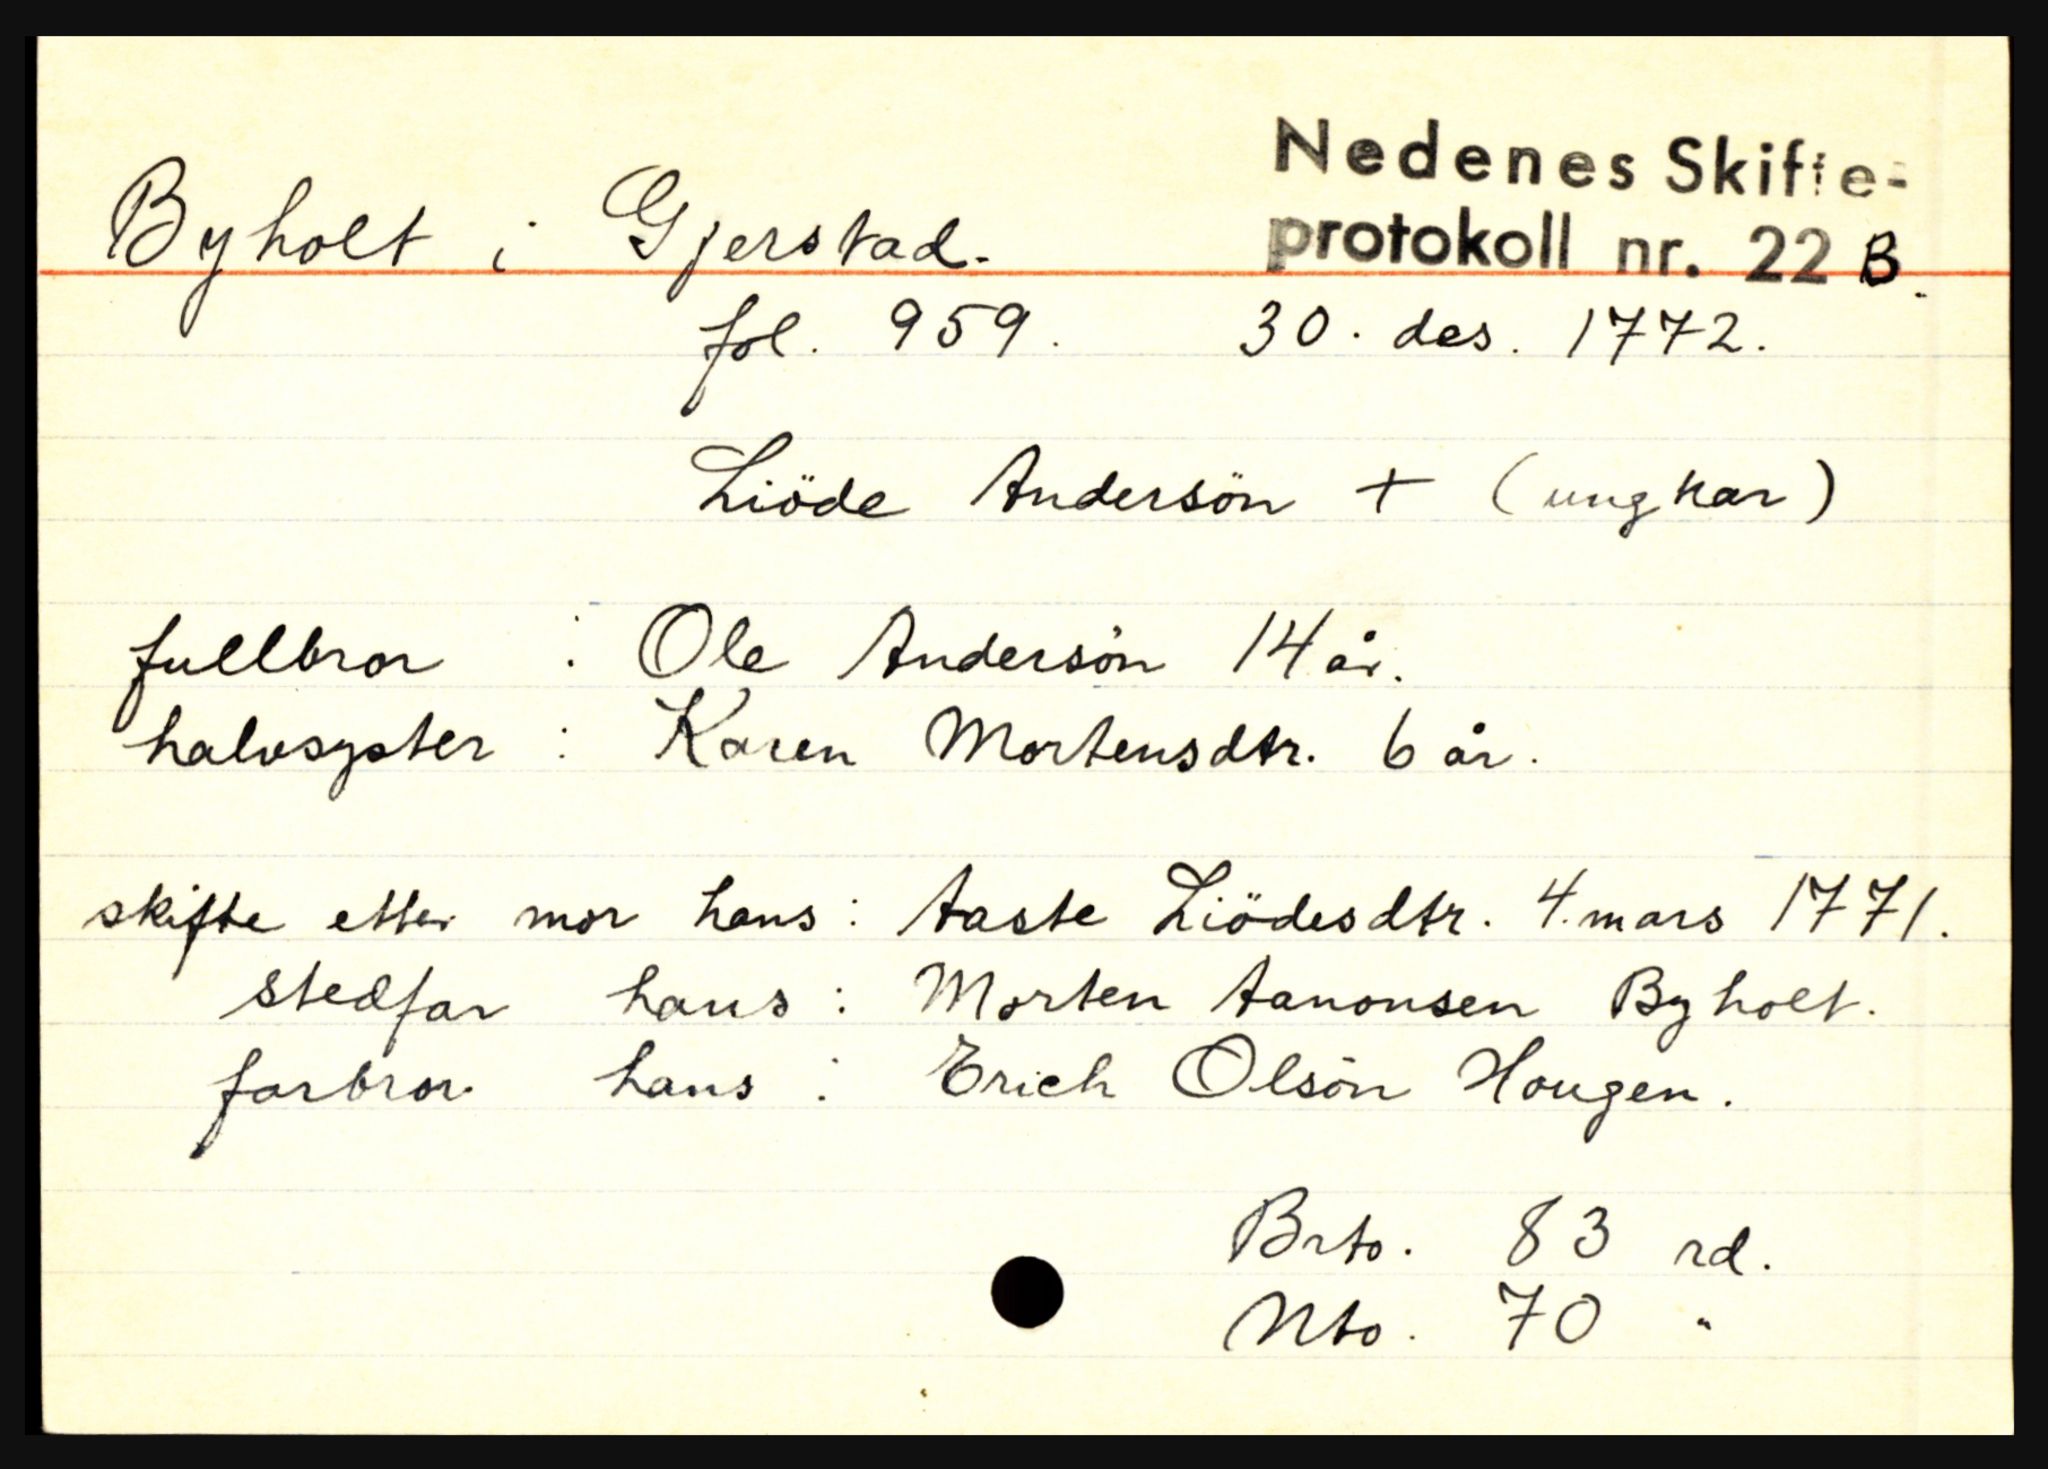 Nedenes Skifte-
Byholt i Gjerstad. protokoll nr. 22 B.
fol. 959. 30. des. 1772.
Liöde Andersön + (ungkar)
fullbror : Ole Andersön 14 år.
halvsyster : Karen Mortensdtr. 6 år.
skifte etter mor hans : Aaste Liödesdtr. 4. mars 1771.
stedfar hans : Morten Aanonsen Byholt.
farbror hans : Erich Olsön Hougen.
Brto. 83 rd.
Nto. 70 "